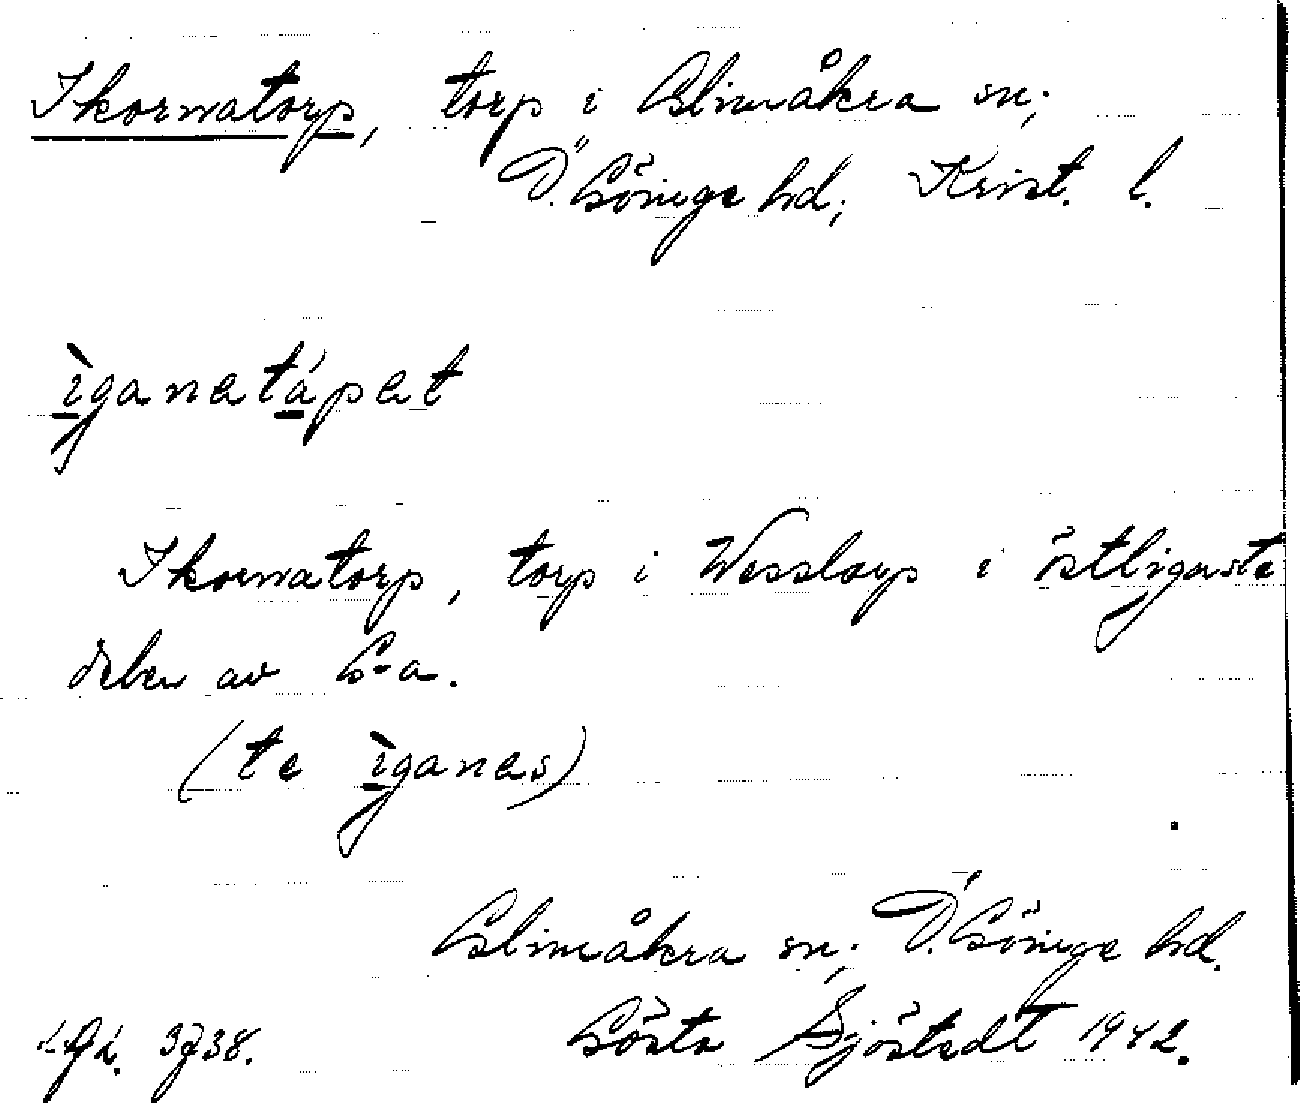 Ikornatorp, torp i Glimåkra sn;
Ö. Göinge hd; Krist. l.
ìganatápat
Ikornatorp, torp i Wesslarp i östligaste
delen av G-a.
(te ìganas)
Glimåkra sn; Ö. Göinge hd.
Gösta Sjöstedt 1942.
3738.